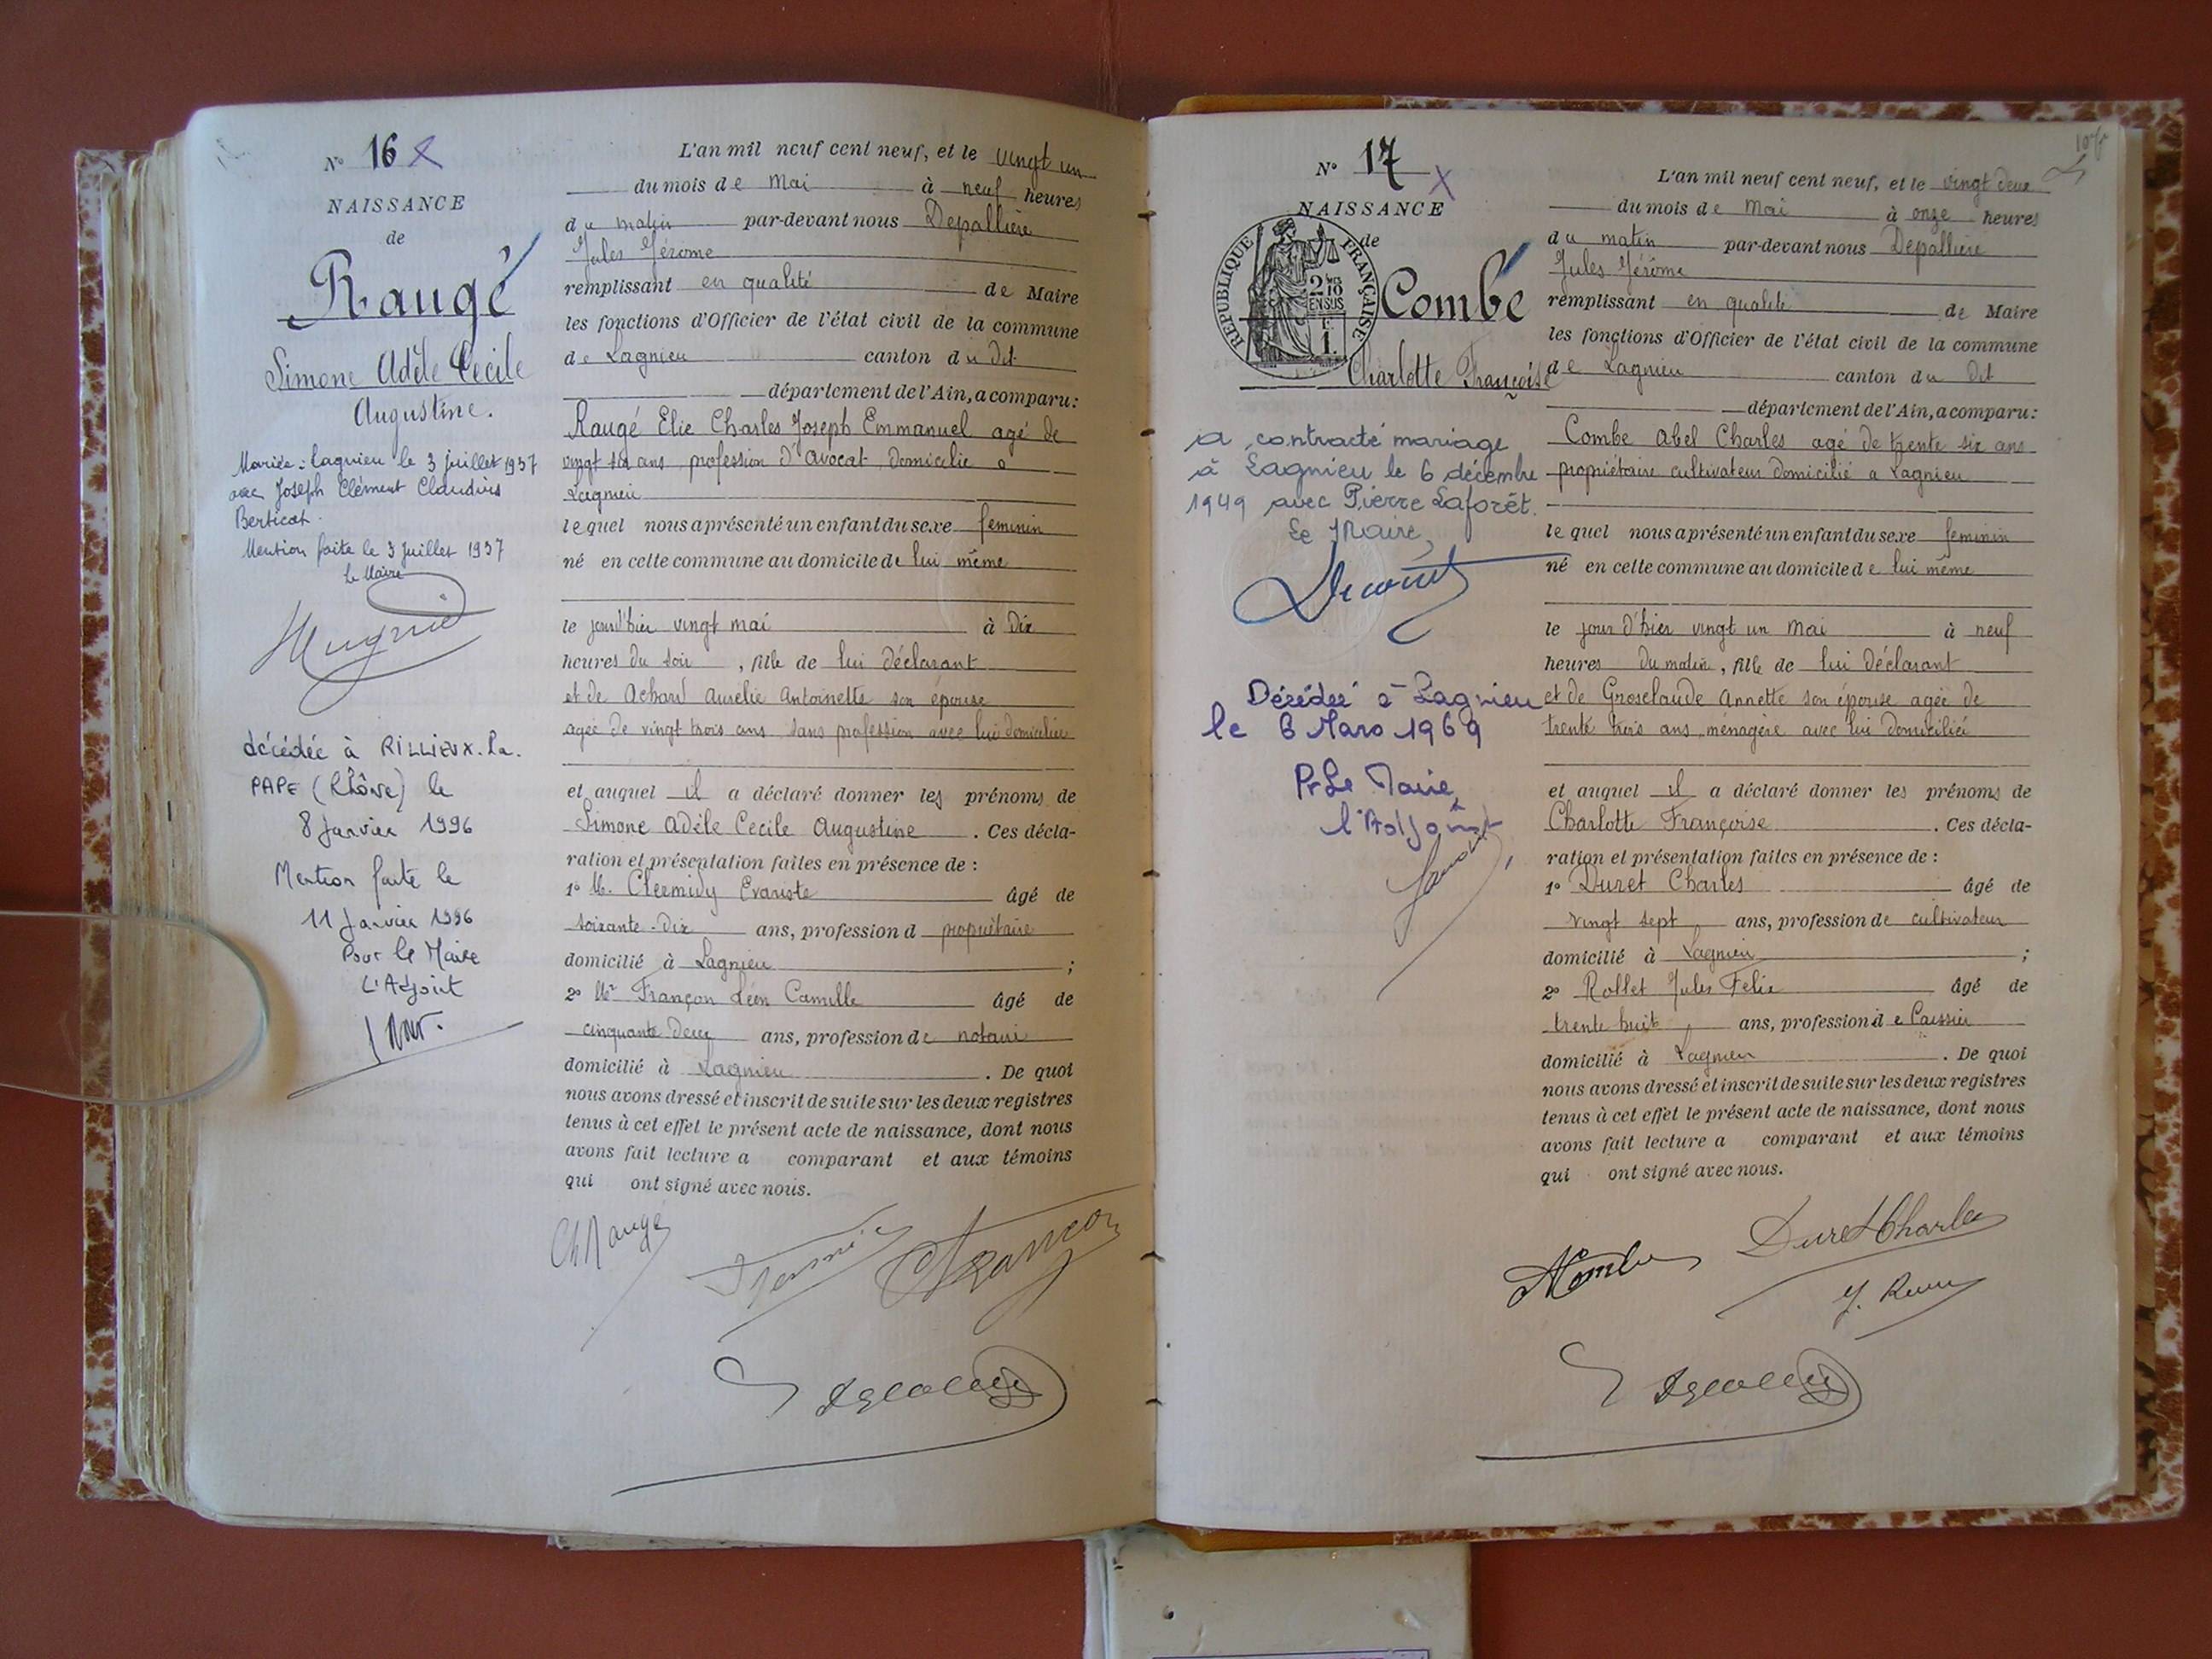 N° 16
NAISSANCE
de
Raugé
Simone Adèle Cécile
Augustine.
Mariée : Lagnieu le 3 juillet 1937
avec Joseph Clément Claudius
Berticat.
Mention faite le 3 juillet 1937
le Maire
décédée à RILLIEUX.La.
PAPE (Rhône) le
8 Janvier 1996
Mention faite le
11 Janvier 1996
Pour le Maire
L'Adjoint
L'an mil neuf cent neuf, et le vingt un
du mois de Mai à neuf heures
du matin par-devant nous Depallière
Jules Jérome
remplissant en qualité de Maire
les fonctions d'Officier de l'état civil de la commune
de Lagnieu canton du dit
département de l'Ain, a comparu :
Raugé Elie Charles Joseph Emmanuel agé de
vingt six ans profession d'avocat domicilié a
Lagnieu
lequel nous a présenté un enfant du sexe feminin
né en cette commune au domicile de lui même
le jour d'hier vingt mai à dix
heures du soir, fille de lui déclarant
et de Achard Aurélie Antoinette son épouse
agée de vingt trois ans sans profession avec lui domiciliée
et auquel il a déclaré donner les prénoms de
Simone Adèle Cécile Augustine. Ces décla-
ration et présentation faites en présence de :
1° M. Evariste âgé de
soixante-dix ans, profession d propriétaire
domicilié à Lagnieu ;
2° Mr Françon Léon Camille âgé de
cinquante deux ans, profession de notaire
domicilié à Lagnieu. De quoi
nous avons dressé et inscrit de suite sur les deux registres
tenus à cet effet le présent acte de naissance, dont nous
avons fait lecture a comparant et aux témoins
qui ont signé avec nous.
Ch Raugé
Françon
N° 17
NAISSANCE
de
REPUBLIQUE FRANÇAISE
2/10
EN SUS
1
Combe
Charlotte Françoise
a contracté mariage
à Lagnieu le 6 décembre
1949 avec Pierre Laforêt.
Le Maire,
Décédée à Lagnieu
le 6 Mars 1969
Pr Le Maire,
l'Adjoint
L'an mil neuf cent neuf, et le vingt deux
du mois de Mai à onze heures
du matin par-devant nous Depallière
Jules Jérôme
remplissant en qualité de Maire
les fonctions d'Officier de l'état civil de la commune
de Lagnieu canton du dit
département de l'Ain, a comparu :
Combe Abel Charles agé de trente six ans
propriétaire cultivateur domicilié a Lagnieu
lequel nous a présenté un enfant du sexe feminin
né en cette commune au domicile de lui même
le jour d'hier vingt un Mai à neuf
heures du matin, fille de lui déclarant
et de Groselaude Annette son épouse agée de
trente trois ans ménagère avec lui domiciliée
et auquel il a déclaré donner les prénoms de
Charlotte Françoise. Ces décla-
ration et présentation faites en présence de :
1° Duret Charles âgé de
vingt sept ans, profession de cultivateur
domicilié à Lagnieu ;
2° Rollet Jules Felix âgé de
trente huit ans, profession de Caissier
domicilié à Lagnieu. De quoi
nous avons dressé et inscrit de suite sur les deux registres
tenus à cet effet le présent acte de naissance, dont nous
avons fait lecture a comparant et aux témoins
qui ont signé avec nous.
Duret Charles